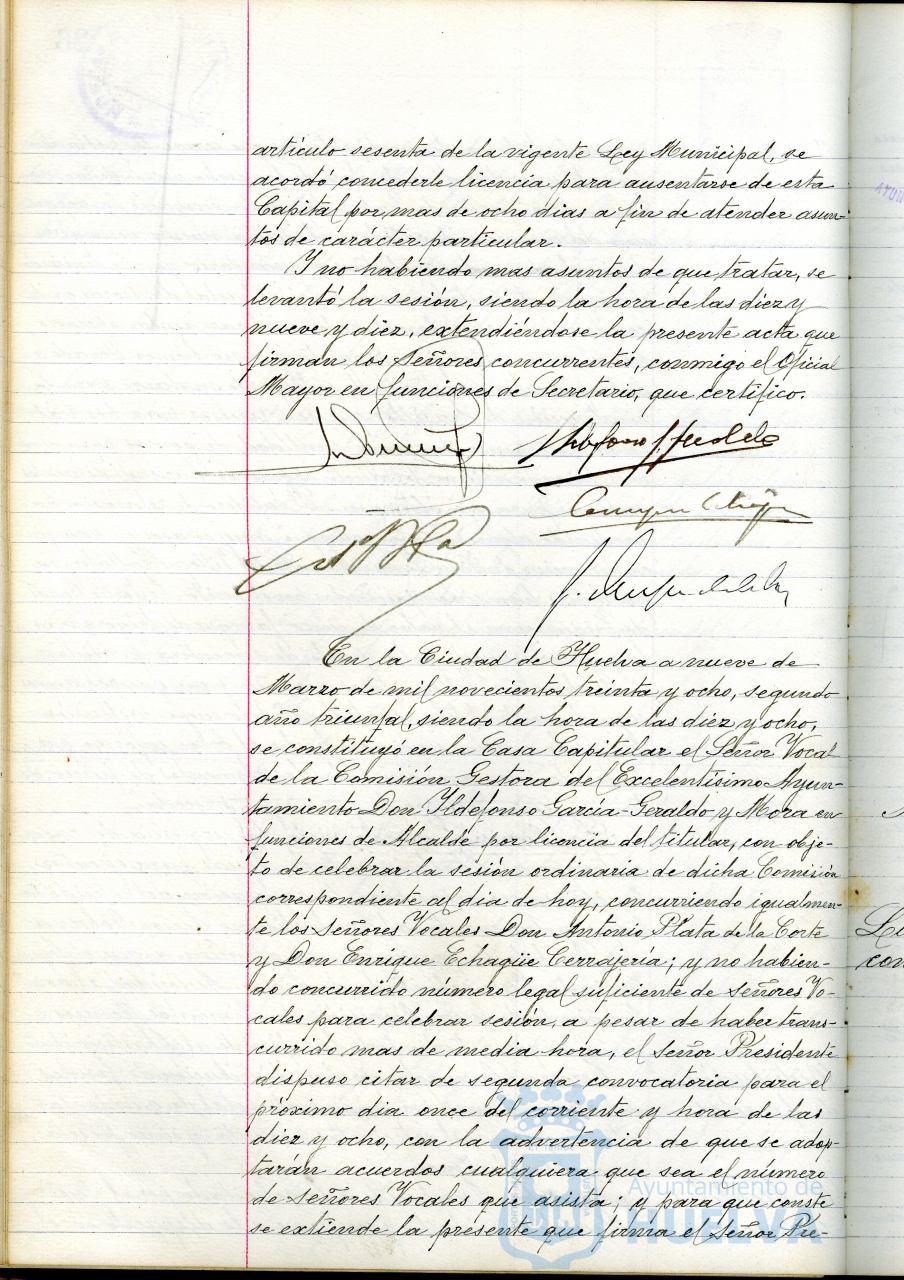 artículo sesenta de la vigente Ley Municipal, se
acordó concederle licencia para ausentarse de esta
Capital por mas de ocho dias a fin de atender asun-
tos de carácter particular.
Y no habiendo mas asuntos de que tratar, se
levantó la sesión, siendo la hora de las diez y
nueve y diez, extendiéndose la presente acta que
firman los Señores concurrentes, conmigo el Oficial
Mayor en funciones de Secretario, que certifico.
En la Ciudad de Huelva a nueve de
Marzo de mil novecientos treinta y ocho, segundo
año triunfal, siendo la hora de las diez y ocho,
se constituyó en la Casa Capitular el Señor Vocal
de la Comisión Gestora del Excelentísimo Ayun-
tamiento Don Ildefonso García-Geraldo y Mora en
funciones de Alcalde por licencia del titular, con obje-
to de celebrar la sesión ordinaria de dicha Comisión
correspondiente al dia de hoy, concurriendo igualmen-
te los señores Vocales Don Antonio Plata de la Corte
y Don Enrique Echagüe Cerrajería; y no habien-
do concurrido número legal suficiente de señores Vo-
cales para celebrar sesión, a pesar de haber trans-
currido mas de media hora, el señor Presidente
dispuso citar de segunda convocatoria para el
próximo dia once del corriente y hora de las
diez y ocho, con la advertencia de que se adop-
tarán acuerdos cualquiera que sea el número
de señores Vocales que asista; y para que conste
se extiende la presente que firma el Señor Pre-
Ayuntamiento de
HUELVA